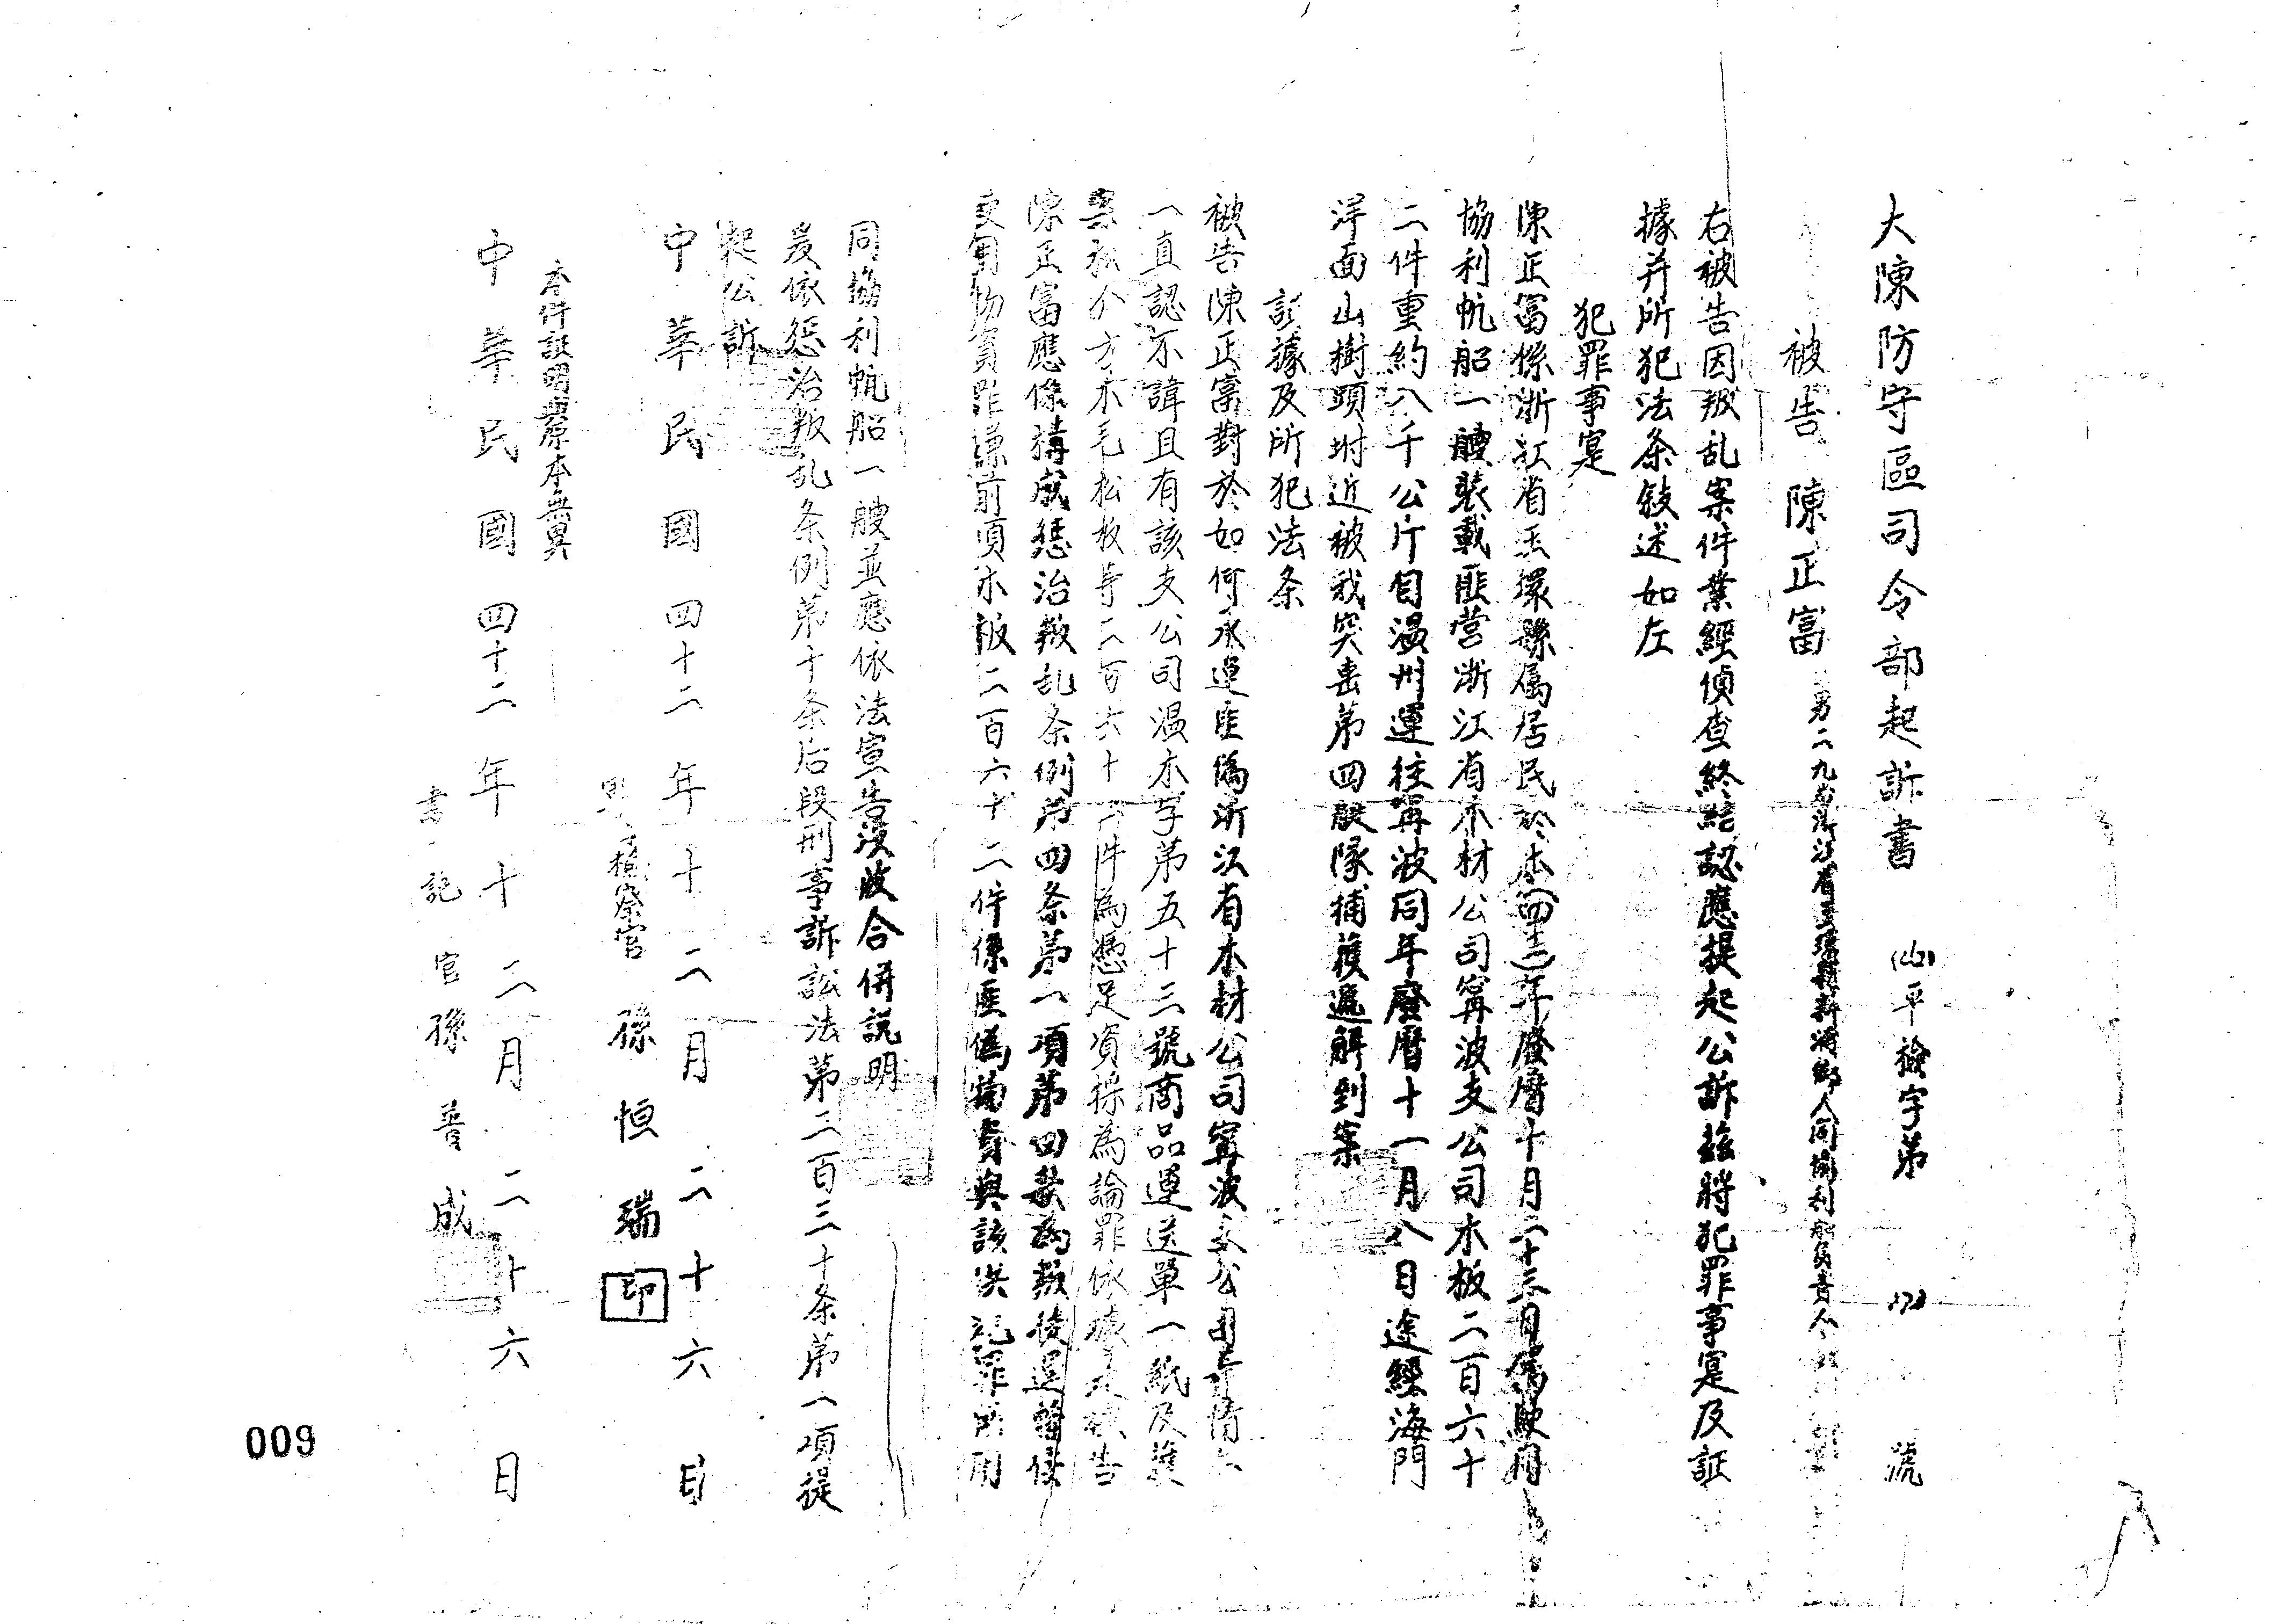 大陳防守區司令部起訴書 (42)平檢字第 171 號
被告 陳正富 男二九歲浙江省玉環縣新灣鄉人同協利船負責人
右被告因叛乱案件業經偵查終結認應提起公訴茲將犯罪事寔及証
據并所犯法条敍述如左
犯罪事寔
陳正富係浙江省玉環縣屬居民於本(四十二)年廢曆十月二十三日駛同
協利帆船一艘裝載匪營浙江省木材公司甯波支公司木板二百六十
二件重約八千公斤自温州運往甯波同年廢曆十一月八日途經海門
洋面山樹頭坿近被我突擊第四艇隊捕獲遞解到案
証據及所犯法条
被告陳正富對於如何承運匪偽浙江省木材公司甯波支公司
一直認不諱且有該支公司温木字第五十三號商品運送單一紙及
松介方木毛松板等二百六十二件為憑足資採為論罪依據被告
陳正富應係構成懲治叛乱条例第四条第一項第四款為叛徒運輸
物資罪謙前項木板二百六十二件係匪偽物資與該犯罪所用
同協利帆船一艘並應依法宣告沒收合併説明
爰依懲治叛乱条例第十条后段刑事訴訟法第二百三十条第一項提
起公訴
中華民國四十二年十二月二十六日
檢察官 孫恒瑞 印
本件証明與原本無異
中華民國四十二年十二月二十六日
書記官孫普成
009